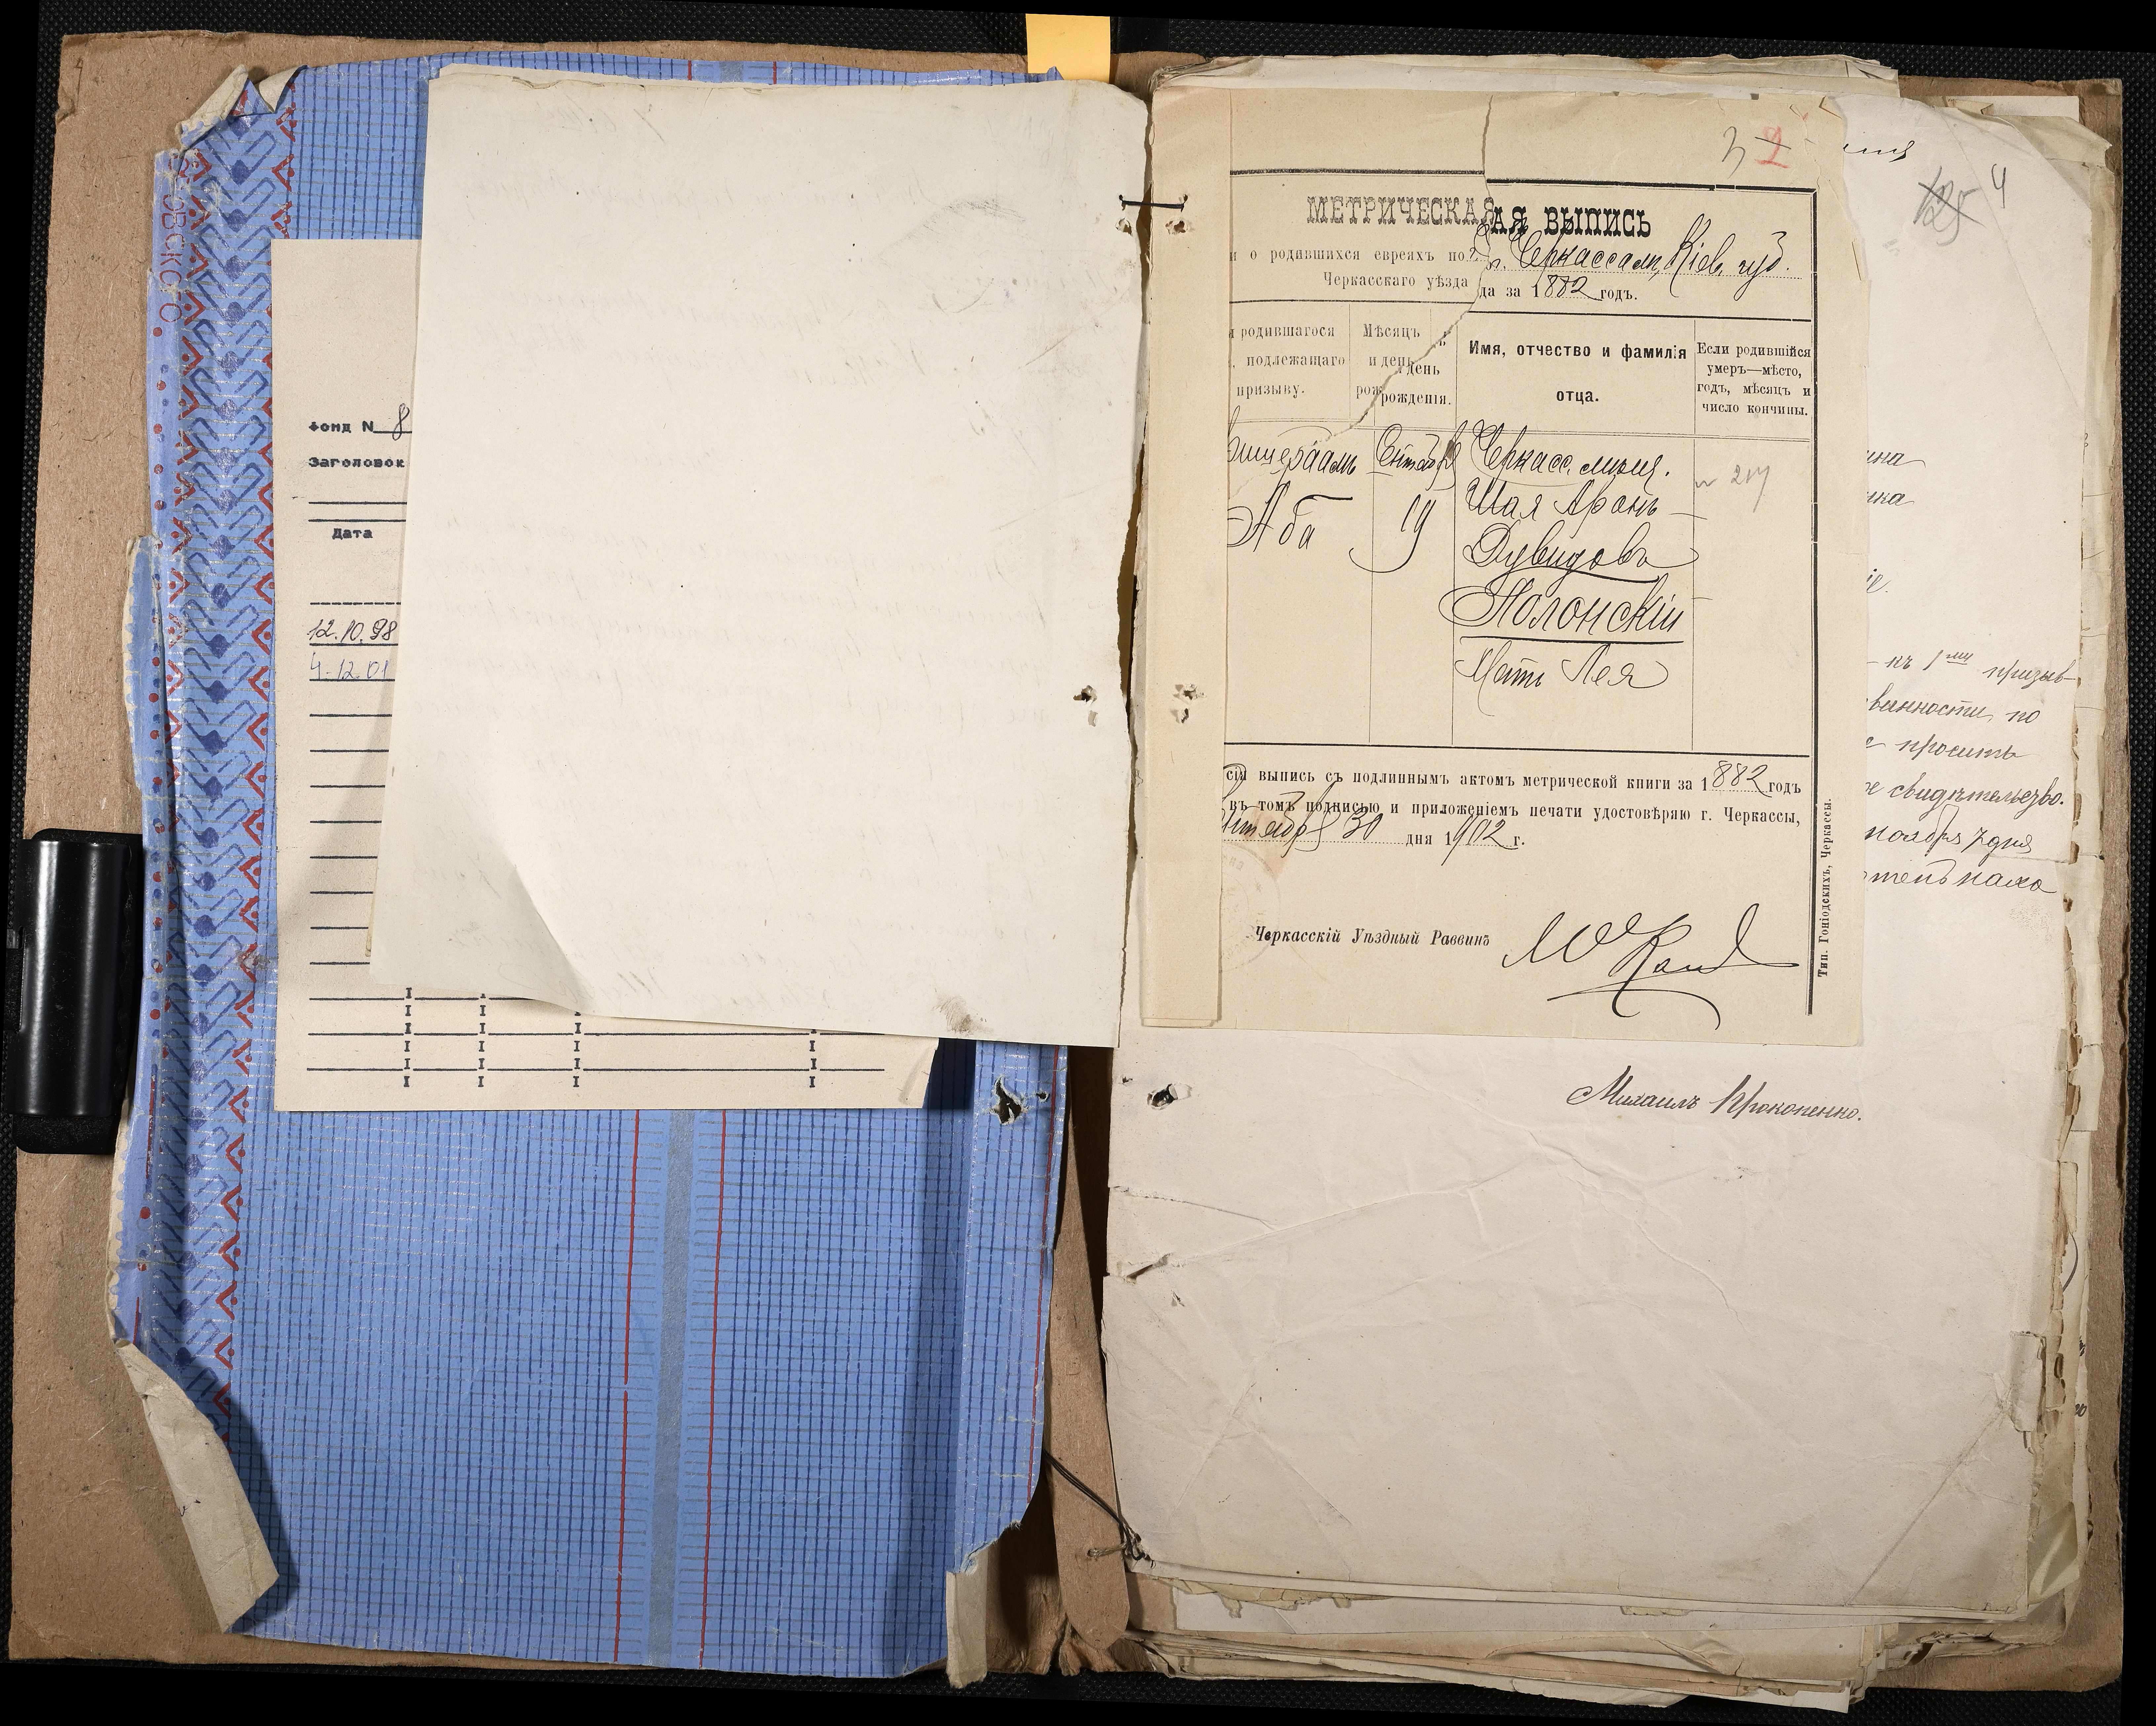 фонд N 8
Заголовок
Дата
12.10.98
4.12.01
3 2
МЕТРИЧЕСКАЯ
АЯ ВЫПИСЬ
и о родившихся евреяхъ по
г. Черкассам, Кіев. губ.
Черкасскаго уѣзда
да за 1882 годъ.
родившагося
подлежащаго
призыву.
Мѣсяцъ
и день
рож
ь
день
рожденія.
Имя, отчество и фамилія
отца.
Если родившійся
умеръ—мѣсто,
годъ, мѣсяцъ и
число кончины.
Аба
19
Черкасс. мѣщ.
Шая Аронъ
Дувидовъ
Полонскій
Мать Лея
217
сія выпись съ подлиннымъ актомъ метрической книги за 1882 годъ
въ томъ подписью и приложеніемъ печати удостовѣряю г. Черкассы,
30 дня 1902 г.
Черкасскій Уѣздный Раввинъ
Тип. Гоніодскихъ, Черкассы.
125 4
ина
ика
іе.
къ 1му призыв-
винности по
просить
свидѣтельство.
ноября 7 дня
Михаилъ Прокопенко.